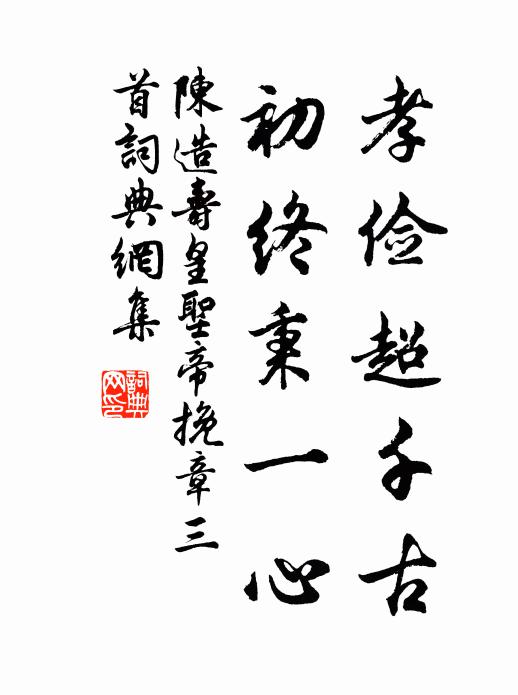 孝儉超千古
初終秉一心
陳造壽皇聖帝挽章三
首詞典網集
詞典
网印